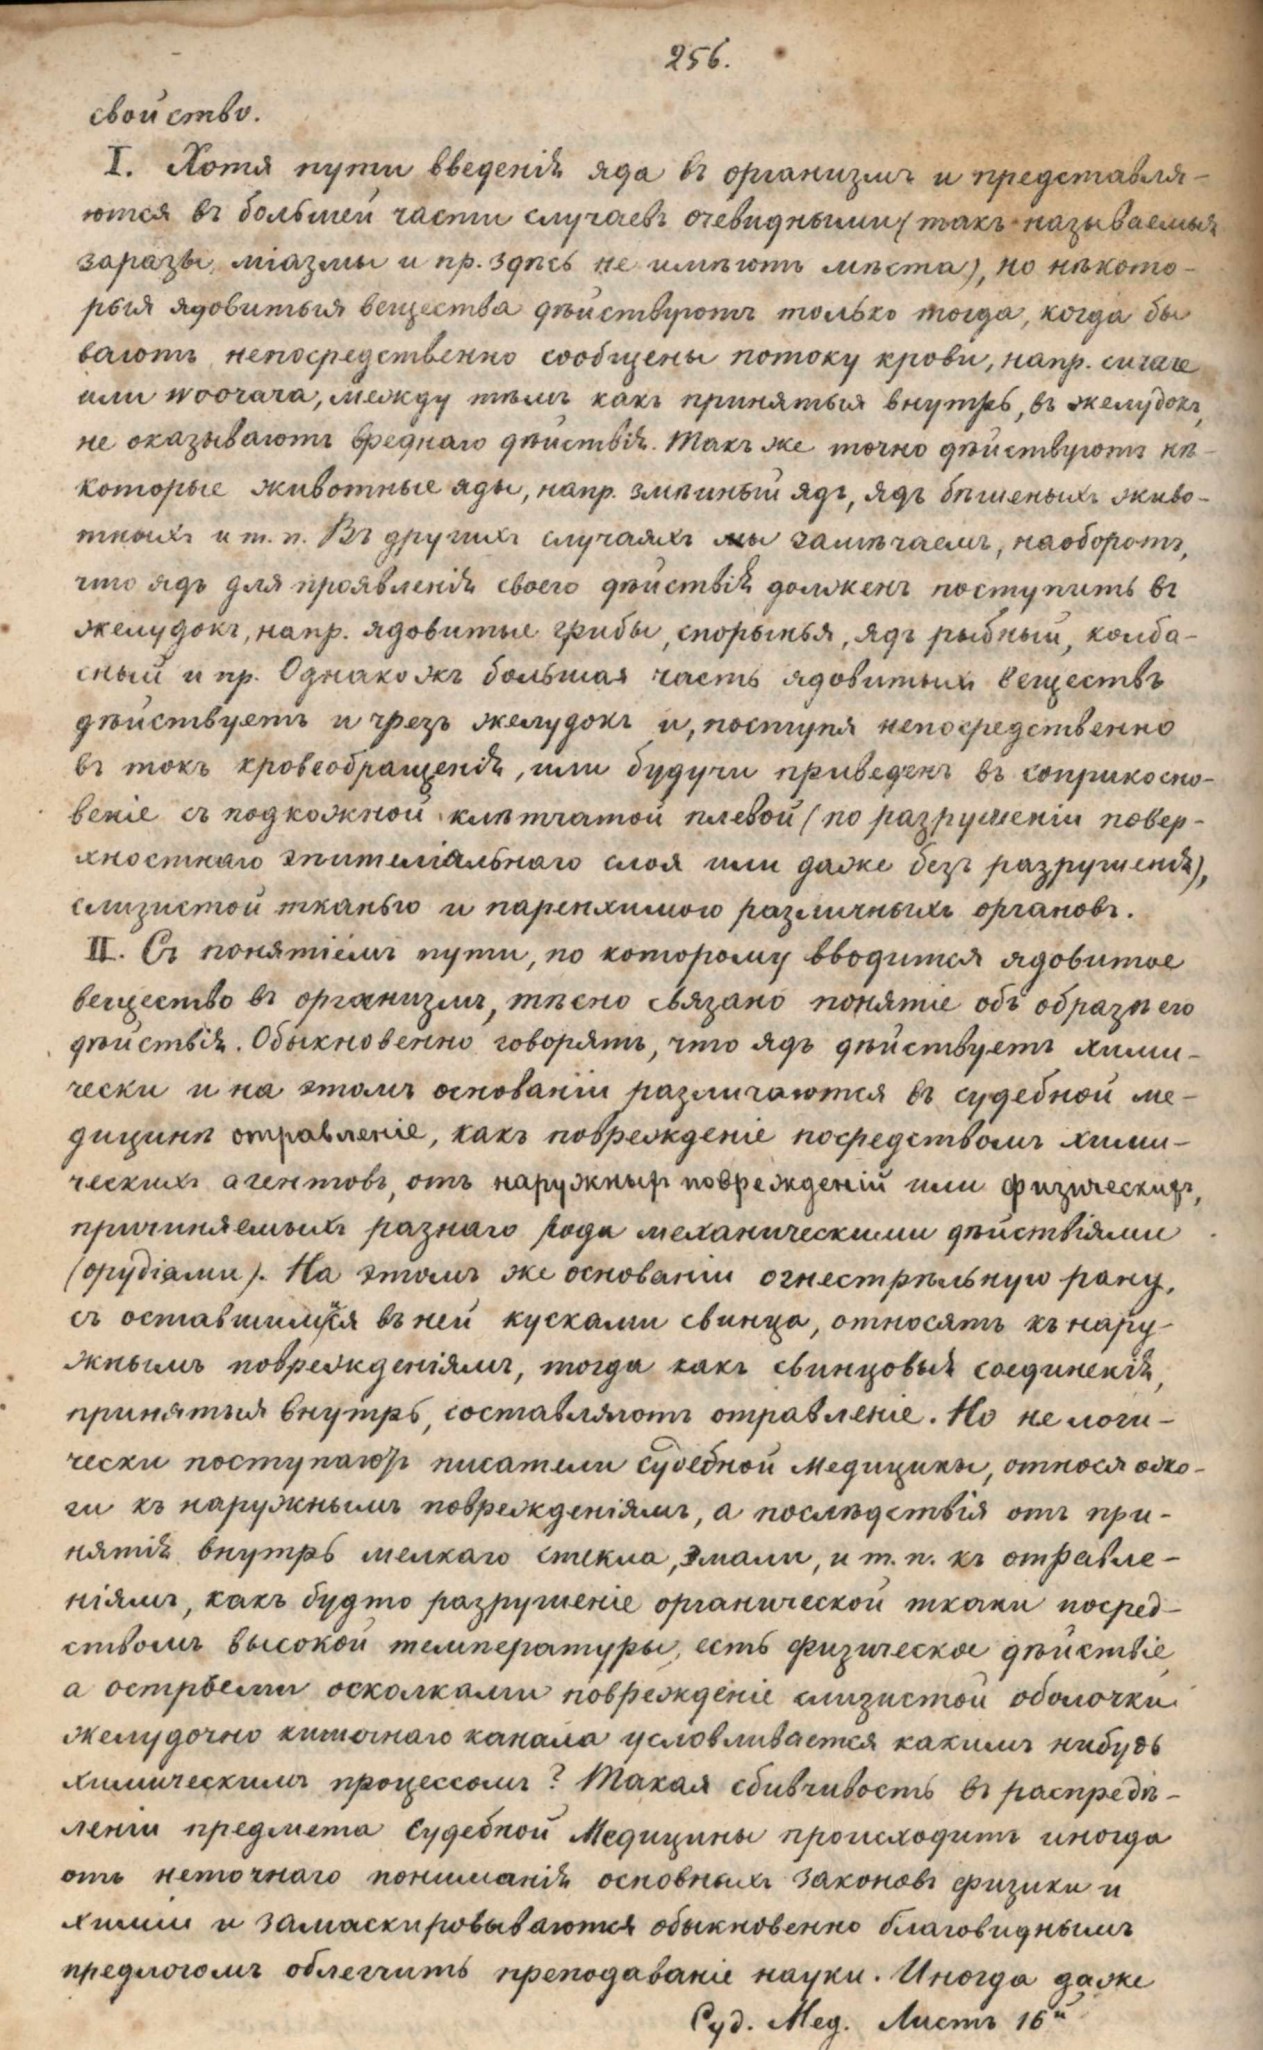 256.
свойство.
I. Хотя пути введенія яда въ организмъ и представля-
ются въ большей части случаевъ очевидными (такъ называемыя
заразы, міазмы и пр. здѣсь не имѣютъ мѣста), но нѣкото-
рыя ядовитыя вещества дѣйствуютъ только тогда, когда бы
ваютъ непосредственно сообщены потоку крови, напр. curare
или woorara, между тѣмъ какъ принятыя внутрь, въ желудокъ,
не оказываютъ вреднаго дѣйствія. Такъ же точно дѣйствуютъ нѣ-
которые животные яды, напр. змѣиный ядъ, ядъ бѣшеныхъ живо-
тныхъ и т. п. Въ другихъ случаяхъ мы замѣчаемъ, наоборотъ,
что ядъ для проявленія своего дѣйствія долженъ поступить въ
желудокъ, напр. ядовитые грибы, спорынья, ядъ рыбный, колба-
сный и пр. Однакожъ большая часть ядовитыхъ веществъ
дѣйствуетъ и чрезъ желудокъ и, поступя непосредственно
въ токъ кровеобращенія, или будучи приведенъ въ соприкосно-
веніе съ подкожной клѣтчатой плевой (по разрушеніи повер-
хностнаго эпителіальнаго слоя или даже безъ разрушенія),
слизистой тканью и паренхимою различныхъ органовъ.
II. Съ понятіемъ пути, по которому вводится ядовитое
вещество въ организмъ, тѣсно связано понятіе объ образѣ его
дѣйствія. Обыкновенно говорятъ, что ядъ дѣйствуетъ хими-
чески и на этомъ основаніи различаются въ судебной ме-
дицинѣ отравленіе, какъ поврежденіе посредствомъ хими-
ческихъ агентовъ, отъ наружныхъ поврежденій или физическихъ,
причиняемыхъ разнаго рода механическими дѣйствіями
(орудіями). На этомъ же основаніи огнестрѣльную рану,
съ оставшимися въ ней кусками свинца, относятъ къ нару-
жнымъ поврежденіямъ, тогда какъ свинцовыя соединенія,
принятыя внутрь, составляютъ отравленіе. Но не логи-
чески поступаютъ писатели Судебной Медицины, относя ожо-
ги къ наружнымъ поврежденіямъ, а послѣдствія отъ при-
нятія внутрь мелкаго стекла, эмали, и т. п. къ отравле-
ніямъ, какъ будто разрушеніе органической ткани посред-
ствомъ высокой температуры, есть физическое дѣйствіе,
а острыми осколками поврежденіе слизистой оболочки
желудочно кишечнаго канала условливается какимъ нибудь
химическимъ процессомъ? Такая сбивчивость въ распредѣ-
леніи предмета Судебной Медицины происходитъ иногда
отъ неточнаго пониманія основныхъ законовъ физики и
химіи и замаскировываются обыкновенно благовиднымъ
предлогомъ облегчить преподаваніе науки. Иногда даже
Суд. Мед. Листъ 16й